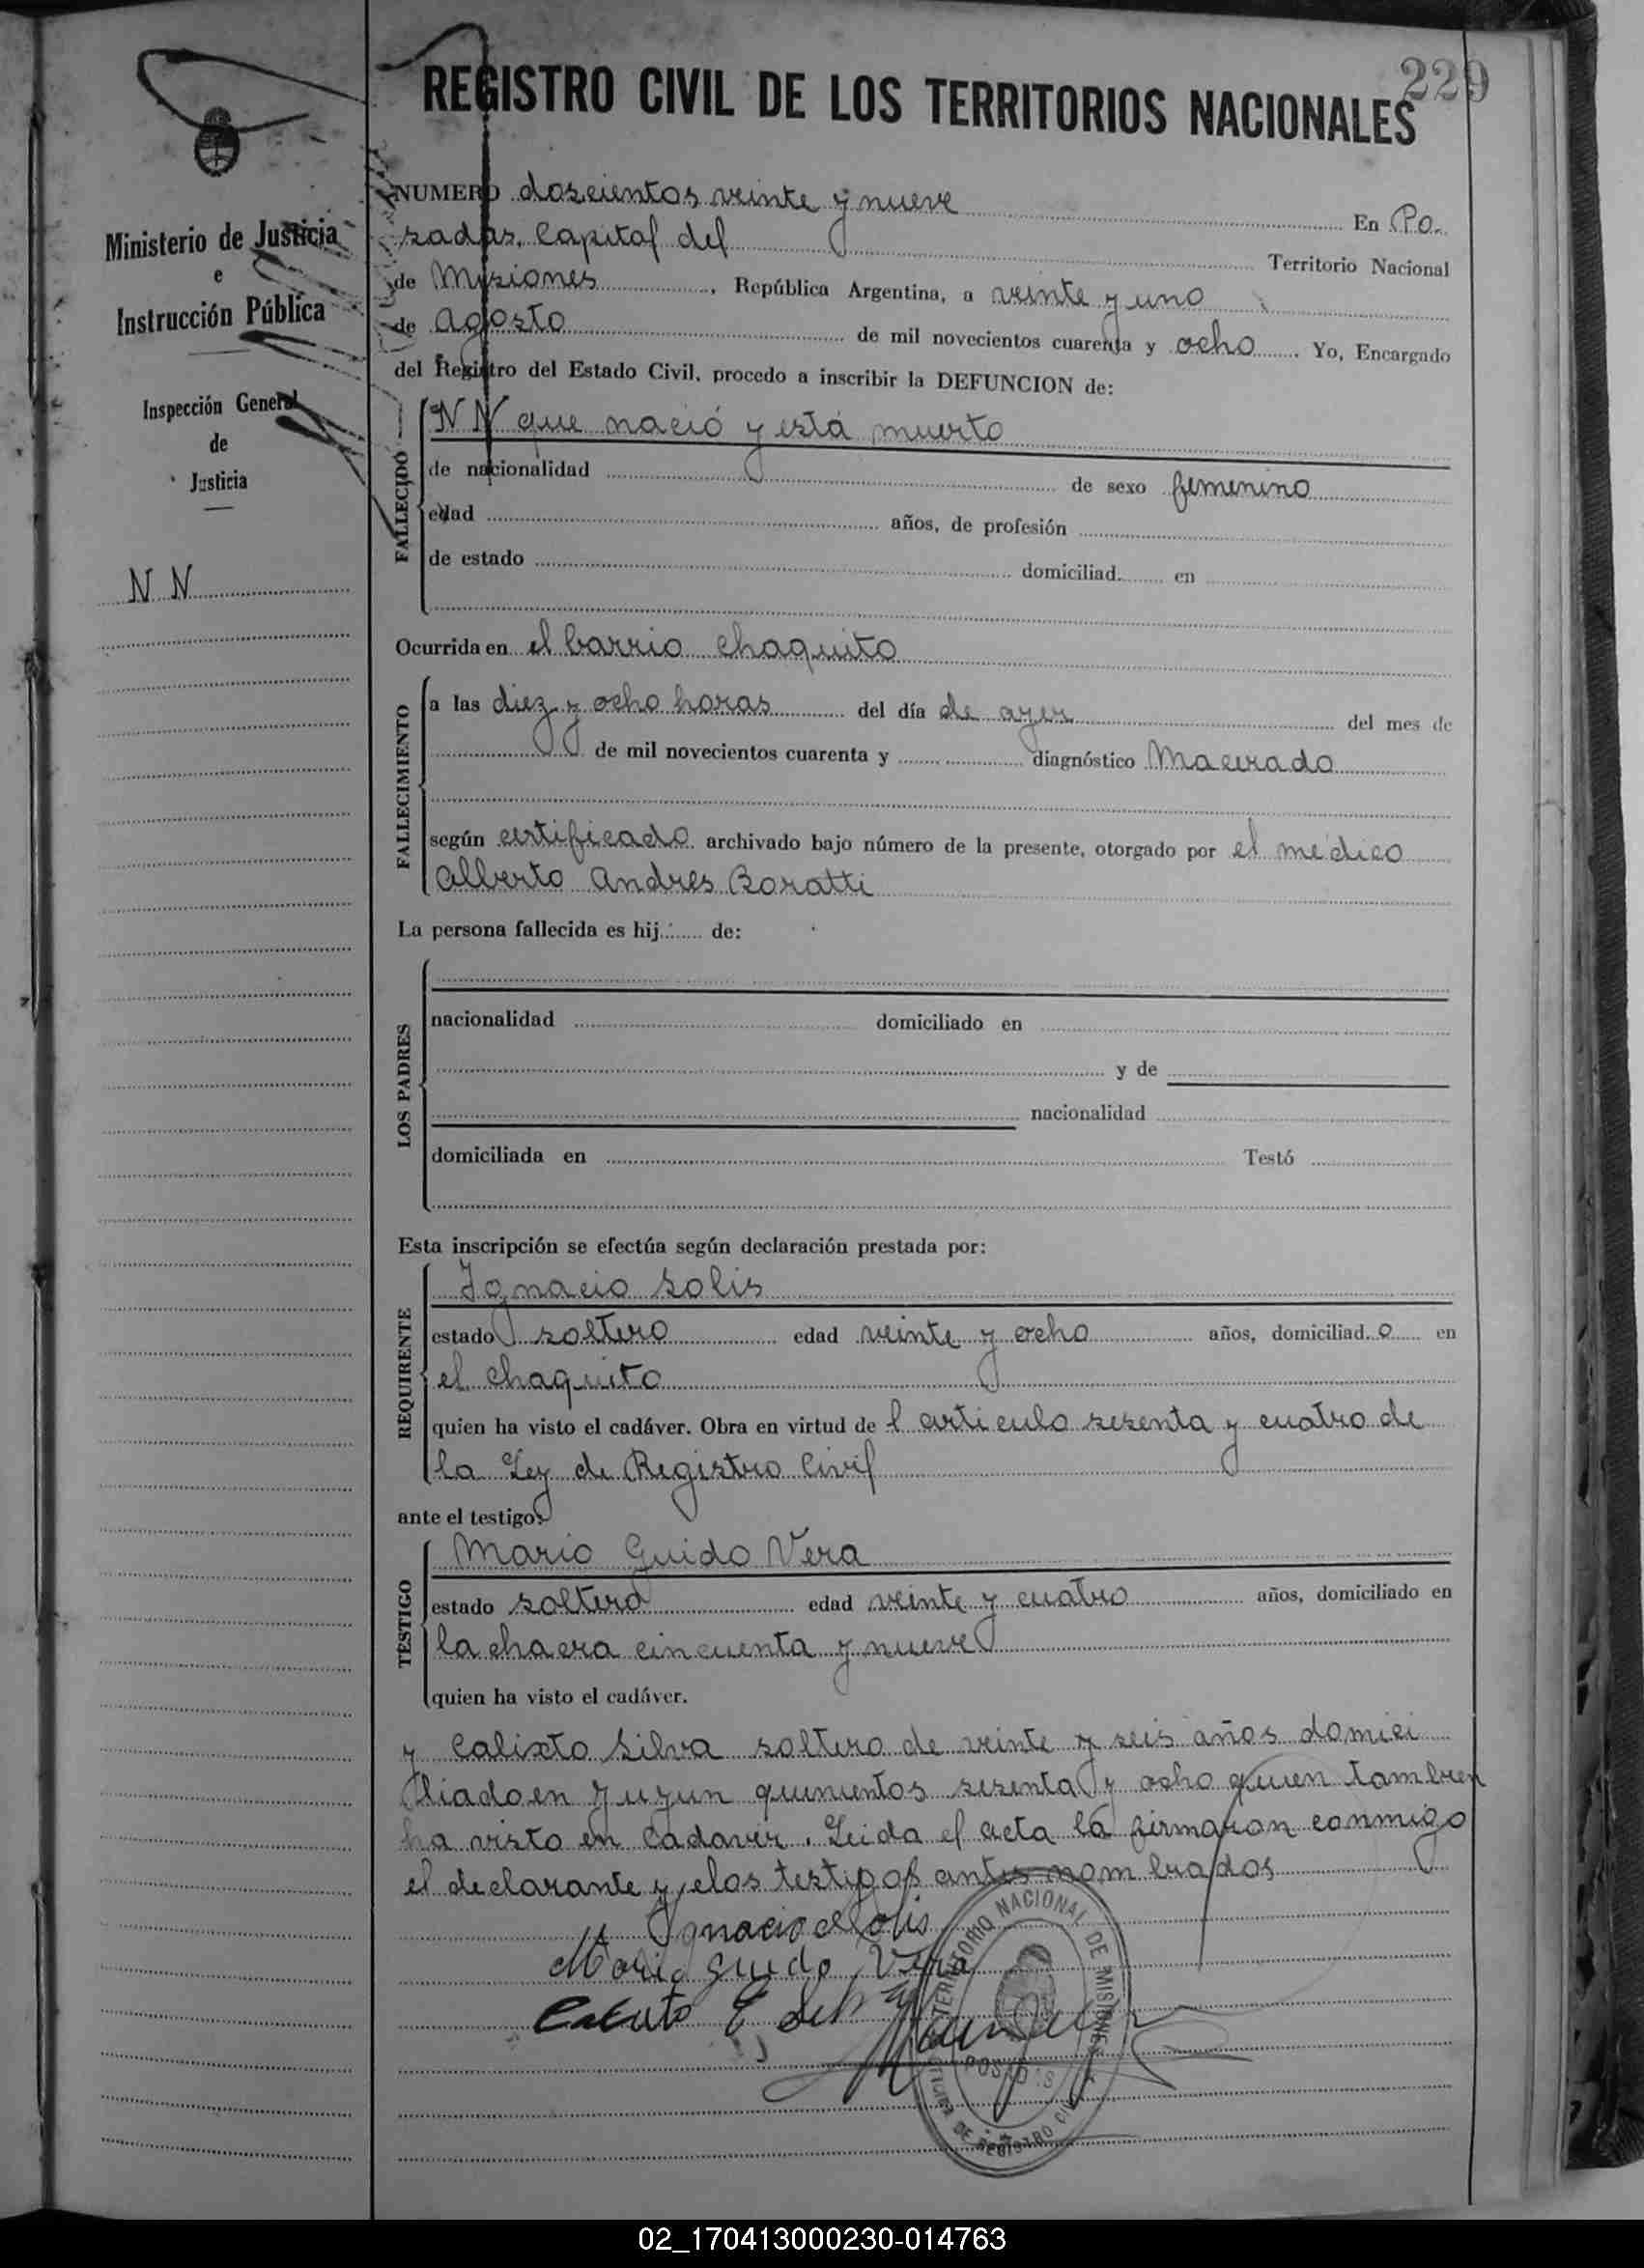 229
REGISTRO CIVIL DE LOS TERRITORIOS NACIONALES
Ministerio de Justicia
e
Instrucción Pública
Inspección General
de
Justicia
N N
NUMERO doscientos veinte y nueve En Po-
sadas, Capital del Territorio Nacional
de Misiones, República Argentina, a veinte y uno
de agosto de mil novecientos cuarenta y ocho. Yo, Encargado
del Registro del Estado Civil, procedo a inscribir la DEFUNCION de:
FALLECIDO
N N que nació y está muerto
de nacionalidad de sexo femenino
edad años, de profesión
de estado domiciliad en
Ocurrida en el barrio Chaquito
FALLECIMIENTO
a las diez y ocho horas del día de ayer del mes de
de mil novecientos cuarenta y diagnóstico Macerado
según certificado archivado bajo número de la presente, otorgado por el médico
Alberto Andres Boratti
La persona fallecida es hij de:
LOS PADRES
nacionalidad domiciliado en
y de
nacionalidad
domiciliada en Testó
Esta inscripción se efectúa según declaración prestada por:
REQUIRENTE
Ignacio Solis
estado soltero edad veinte y ocho años, domiciliad o en
el chaquito
quien ha visto el cadáver. Obra en virtud de l articulo sesenta y cuatro de
la Ley de Registro Civil
ante el testigo:
TESTIGO
Mario Guido Vera
estado soltero edad veinte y cuatro años, domiciliado en
la chacra cincuenta y nueve
quien ha visto el cadáver.
y Calixto Silva soltero de veinte y seis años domici
liado en quinientos sesenta y ocho quien tambien
ha visto en cadaver. Leida el acta la firmaron conmigo
el declarante y los testigos antes nombrados
Ignacio Solis
Mario Guido Vera
TERRITORIO NACIONAL DE MISIONES
POSADAS
DE REGISTRO CIVIL
02_170413000230-014763